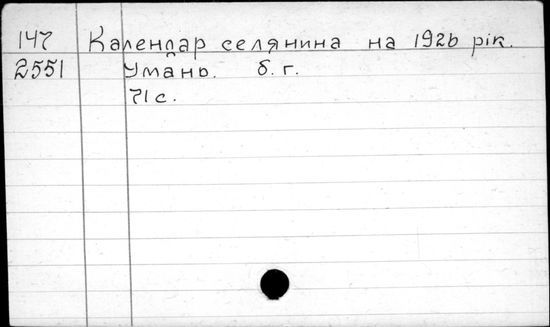 147 Календар селянина на 1926 рік.
2551 Умань. б. г.
71 с.